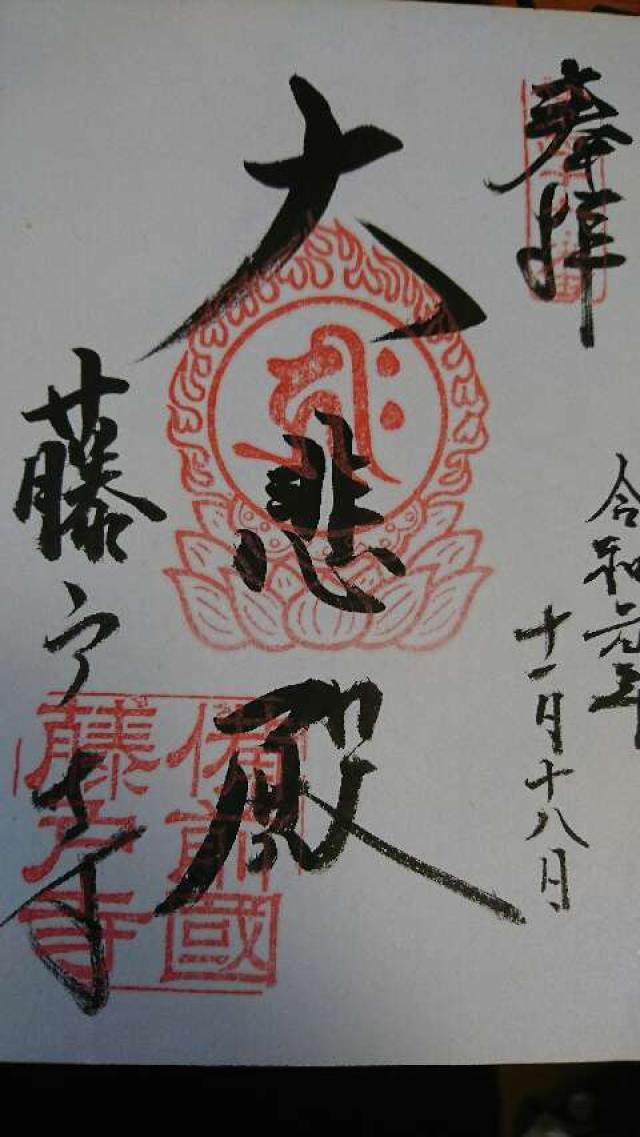 奉拝
令和元年
十一月十八日
大悲殿
藤戸寺
備前國
藤戸寺